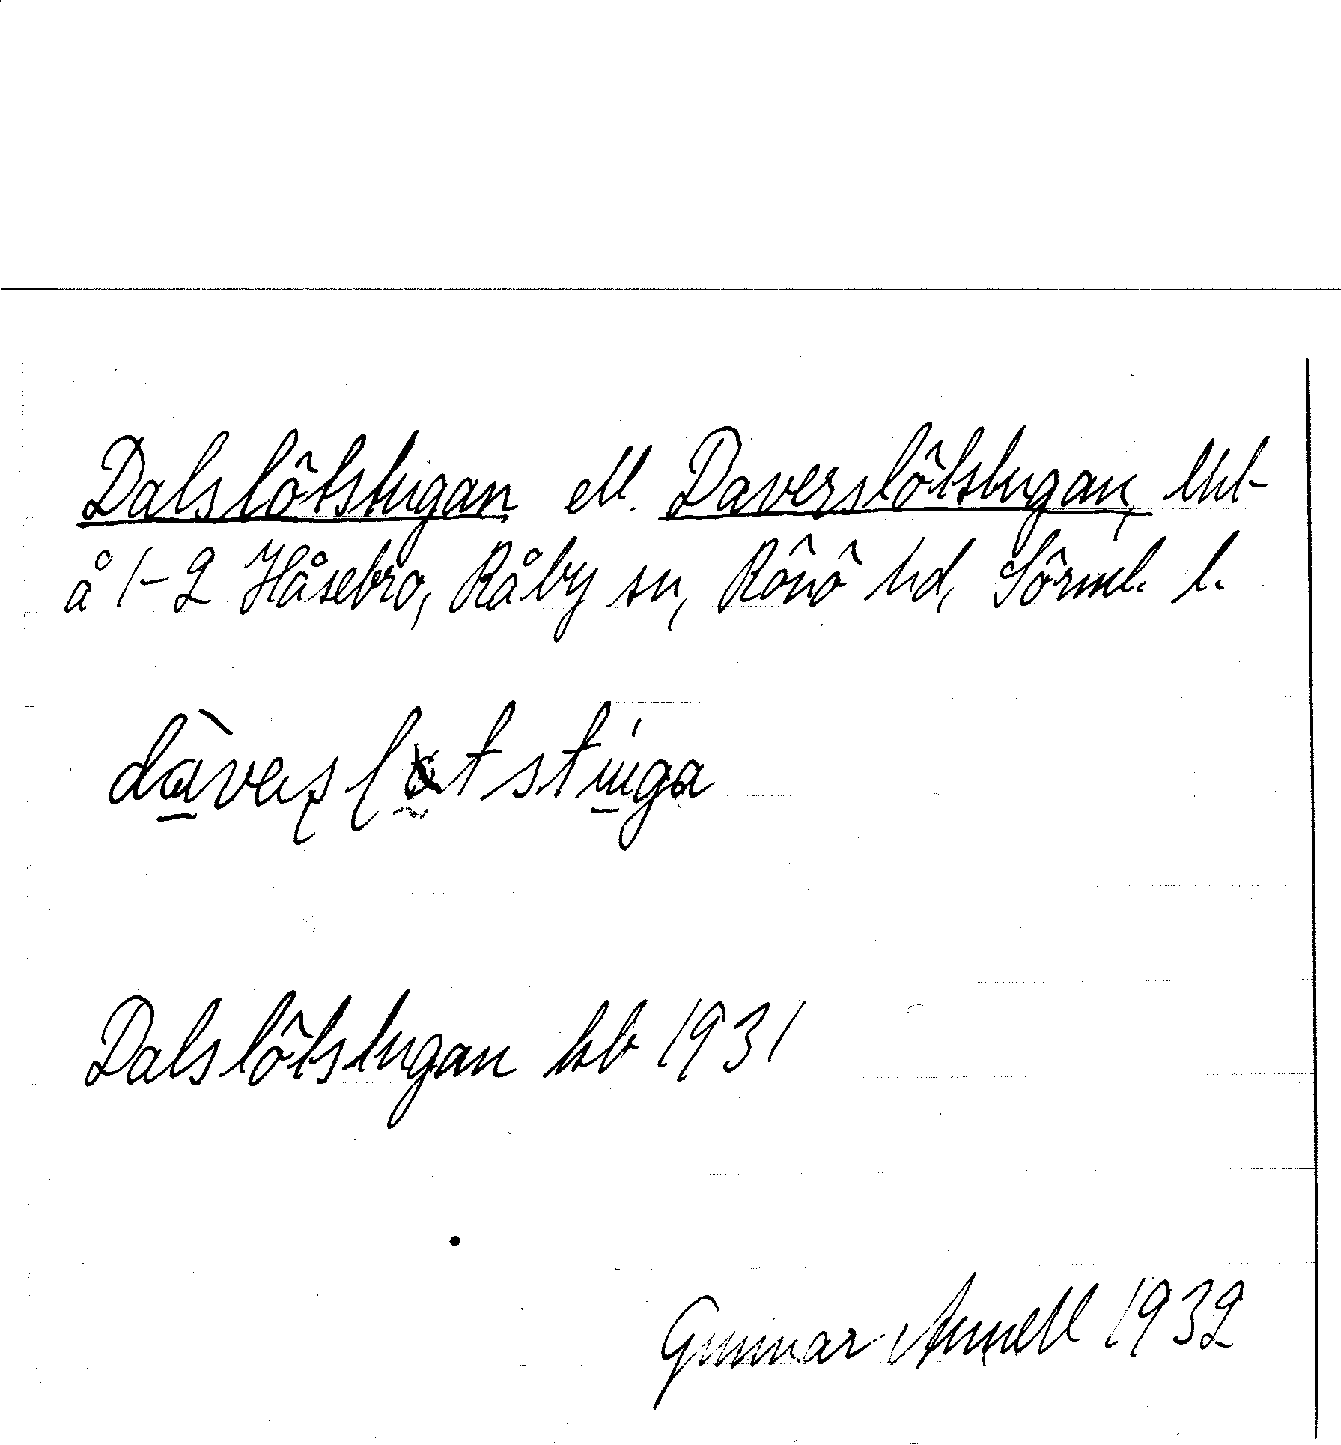 Dalslötstugan ell. Daverslötstugan, lht
å 1-2 Håsebro, Råby sn, Rönö hd, Sörml. l.
dàverslötstuga
Dalslötstugan kb 1931
Gunnar Annell 1932